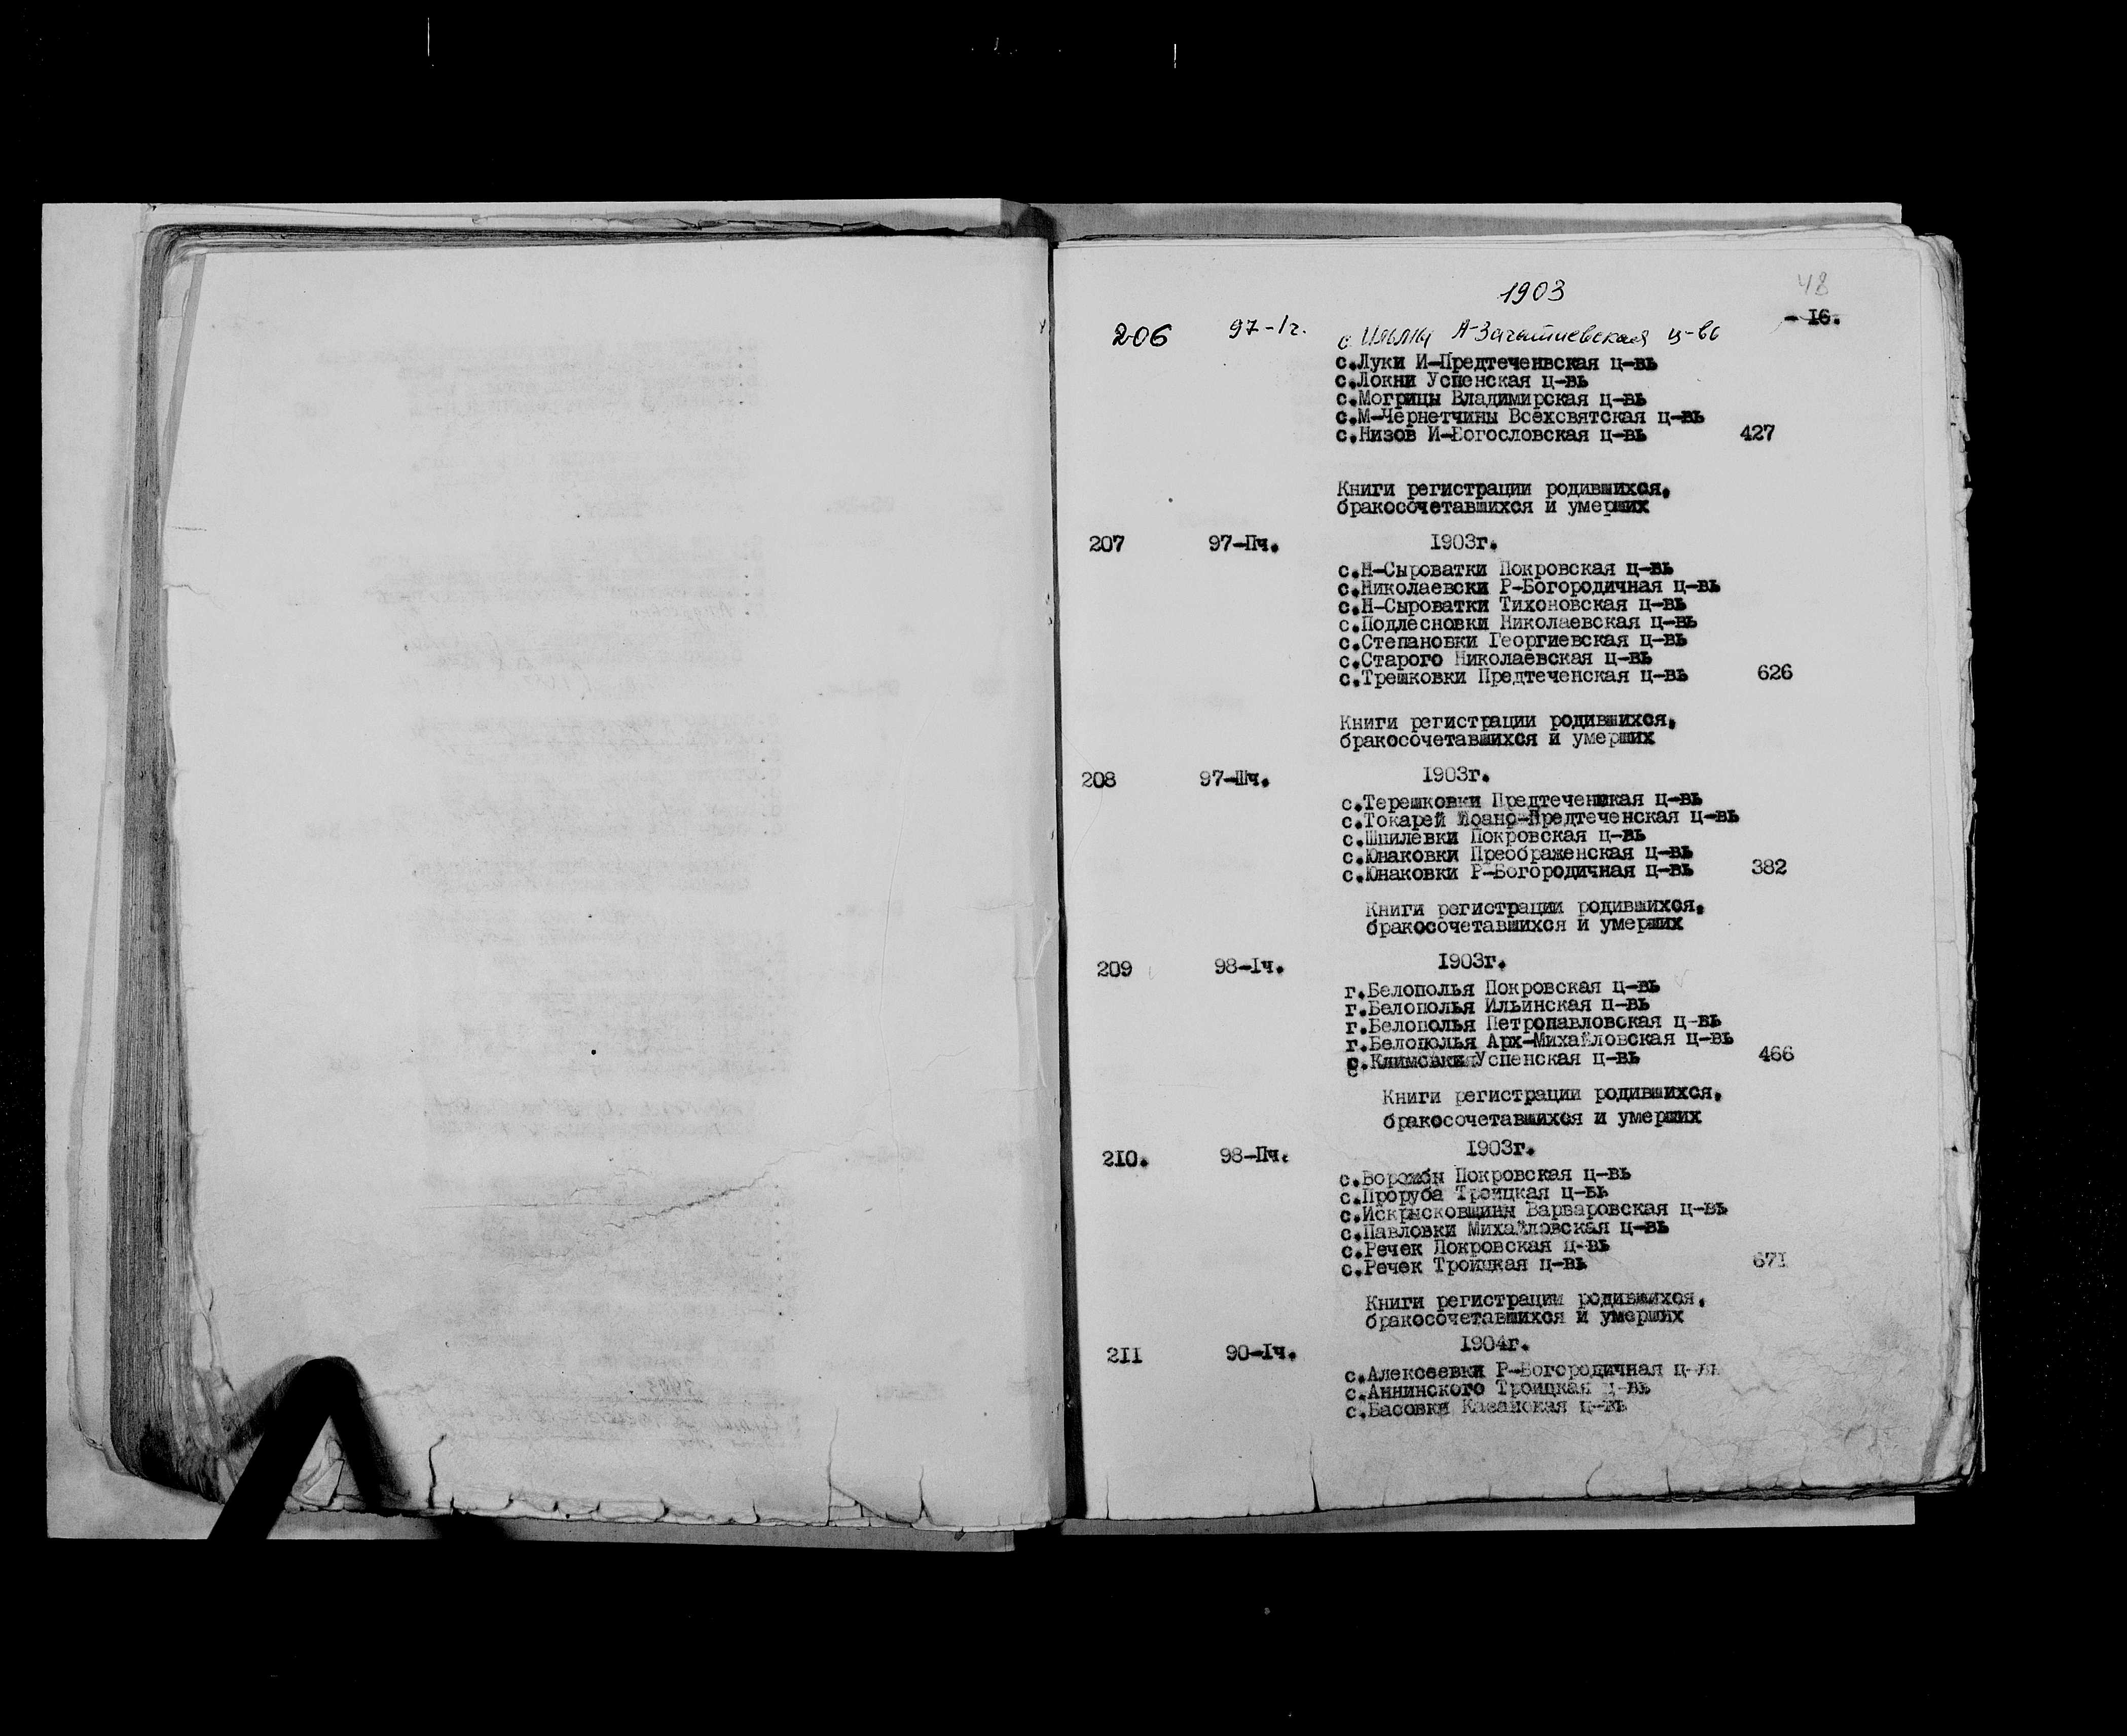 48
1903
- 16.
206 97-Iч. с. А-Зачатиевская ц-вь
с.Луки И-Предтеченвская ц-вь
с.Локни Успенская ц-вь
с.Могрицы Владимирская ц-вь
с.М-Чернетчины Всехсвятская ц-вь
с.Низов И-Богословская ц-вь 427
Книги регистрации родившихся,
бракосочетавшихся и умерших
207 97-Пч. 1903г.
с.Н-Сыроватки Покровская ц-вь
с.Николаевски Р-Богородичная ц-вь
с.Н-Сыроватки Тихоновская ц-вь
с.Подлесновки Николаевская ц-вь
с.Степановки Георгиевская ц-вь
с.Старого Николаевская ц-вь
с.Трешковки Предтеченская ц-вь 626
Книги регистрации родившихся,
бракосочетавшихся и умерших
208 97-Шч. 1903г.
с.Терешковки Предтеченикая ц-вь
с.Токарей Иоано-Предтеченская ц-вь
с.Шпилевки Покровская ц-вь
с.Юнаковки Преображенская ц-вь
с.Юнаковки Р-Богородичная ц-вь 382
Книги регистрации родившихся,
бракосочетавшихся и умерших
209 98-Iч. 1903г.
г.Белополья Покровская ц-вь
г.Белополья Ильинская ц-вь
г.Белополья Петропавловская ц-вь
г.Белополья Арх-Михайловская ц-вь
с.Климовки Успенская ц-вь 466
Книги регистрации родившихся,
бракосочетавшихся и умерших
210. 98-Пч. 1903г.
с.Ворожбы Покровская ц-вь
с.Проруба Троицкая ц-вь
с.Искрысковщины Варваровская ц-вь
с.Павловки Михайловская ц-вь
с.Речек Покровская ц-вь
с.Речек Троицкая ц-вь 671
Книги регистрации родившихся,
бракосочетавшихся и умерших
211 90-Iч. 1904г.
с.Алексеевки Р-Богородичная ц-вь
с.Аннинского Троицкая ц-вь
с.Басовки Казанская ц-вь